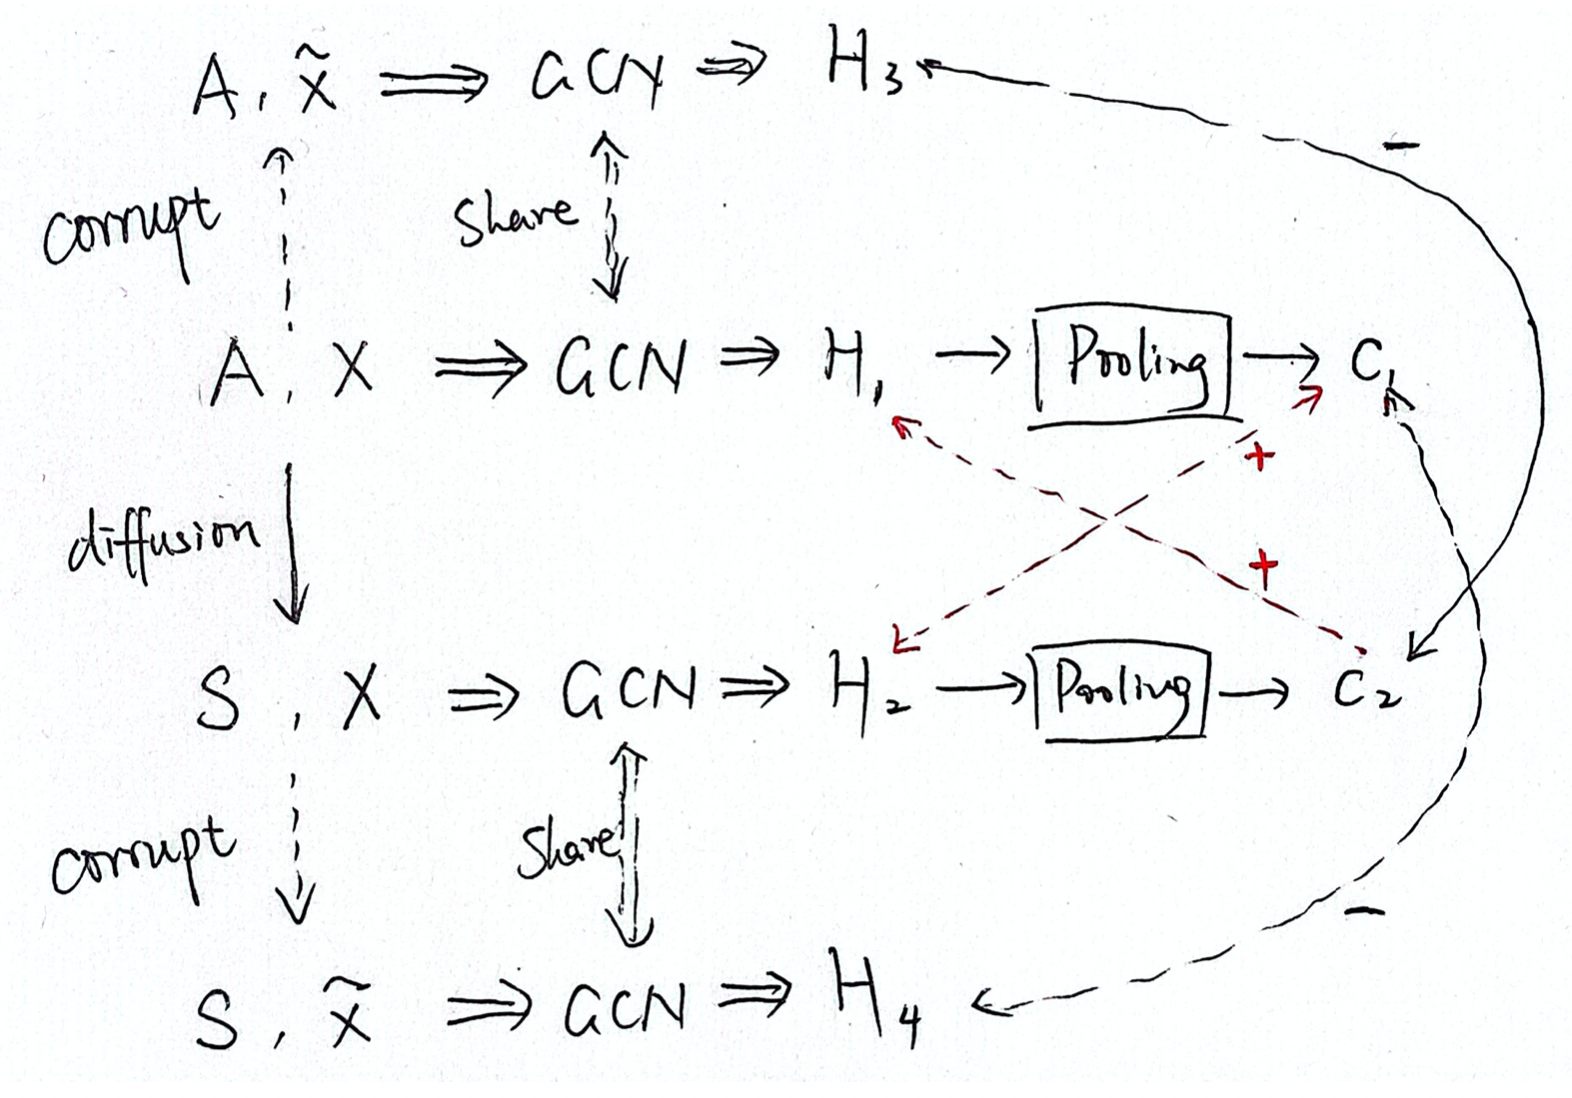 A, X̃ ⇒ GCN ⇒ H₃
−
corrupt
share
A, X ⇒ GCN ⇒ H₁ → Pooling → C₁
+
diffusion
+
S, X ⇒ GCN ⇒ H₂ → Pooling → C₂
corrupt
Share
−
S, X̃ ⇒ GCN ⇒ H₄